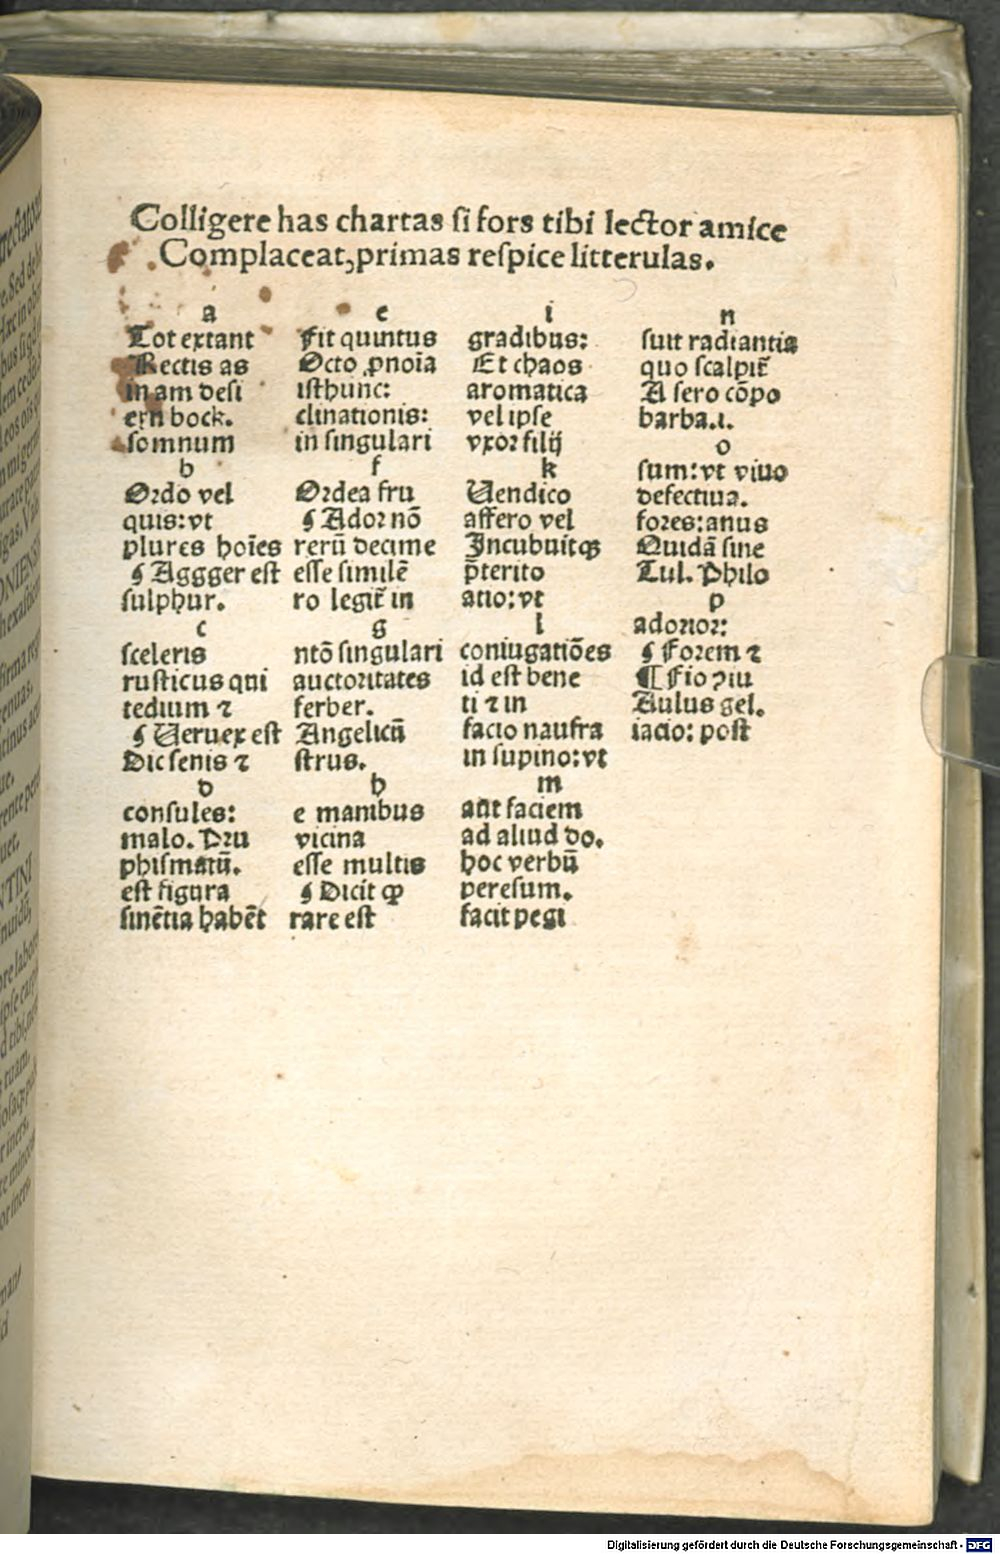 Colligere has chartas ſi fors tibi lector amice
Complaceat, primas reſpice litterulas.
a
Tot extant
Rectis as
in am deſi
ern bock.
ſomnum
b
Ordo vel
quis: vt
plures hoīes
¶ Aggger eſt
ſulphur.
c
ſceleris
ruſticus qui
tedium ⁊
¶ Ueruex eſt
Dic ſenis ⁊
d
conſules:
malo. Dru
phiſmatū.
eſt figura
ſinētia habēt
e
Fit quintus
Octo ꝓnoīa
iſthunc:
clinationis:
in ſingulari
f
Ordea fru
¶ Ador nō
rerū decime
eſſe ſimilē
ro legit̄ in
g
ntō ſingulari
auctoritates
ferber.
Angelicū
ſtrus.
h
e manibus
vicina
eſſe multis
¶ Dicit ꝙ
rare eſt
i
gradibus:
Et chaos
aromatica
vel ipſe
vxor filij
k
Uendico
affero vel
Incubuitqꝫ
p̄terito
atio: vt
l
coniugatiōes
id eſt bene
ti ⁊ in
facio naufra
in ſupino: vt
m
aūt faciem
ad aliud do.
hoc verbū
pereſum.
facit pegi
n
ſuit radiantia
quo ſcalpit̄
A ſero cōpo
barba.i.
o
ſum: vt viuo
defectiua.
fores: anus
Quidā ſine
Tul. Philo
p
adorior:
¶ Forem ⁊
¶ Fio ꝯiu
Aulus gel.
iacio: poſt
Digitalisierung gefördert durch die Deutsche Forschungsgemeinschaft - DFG